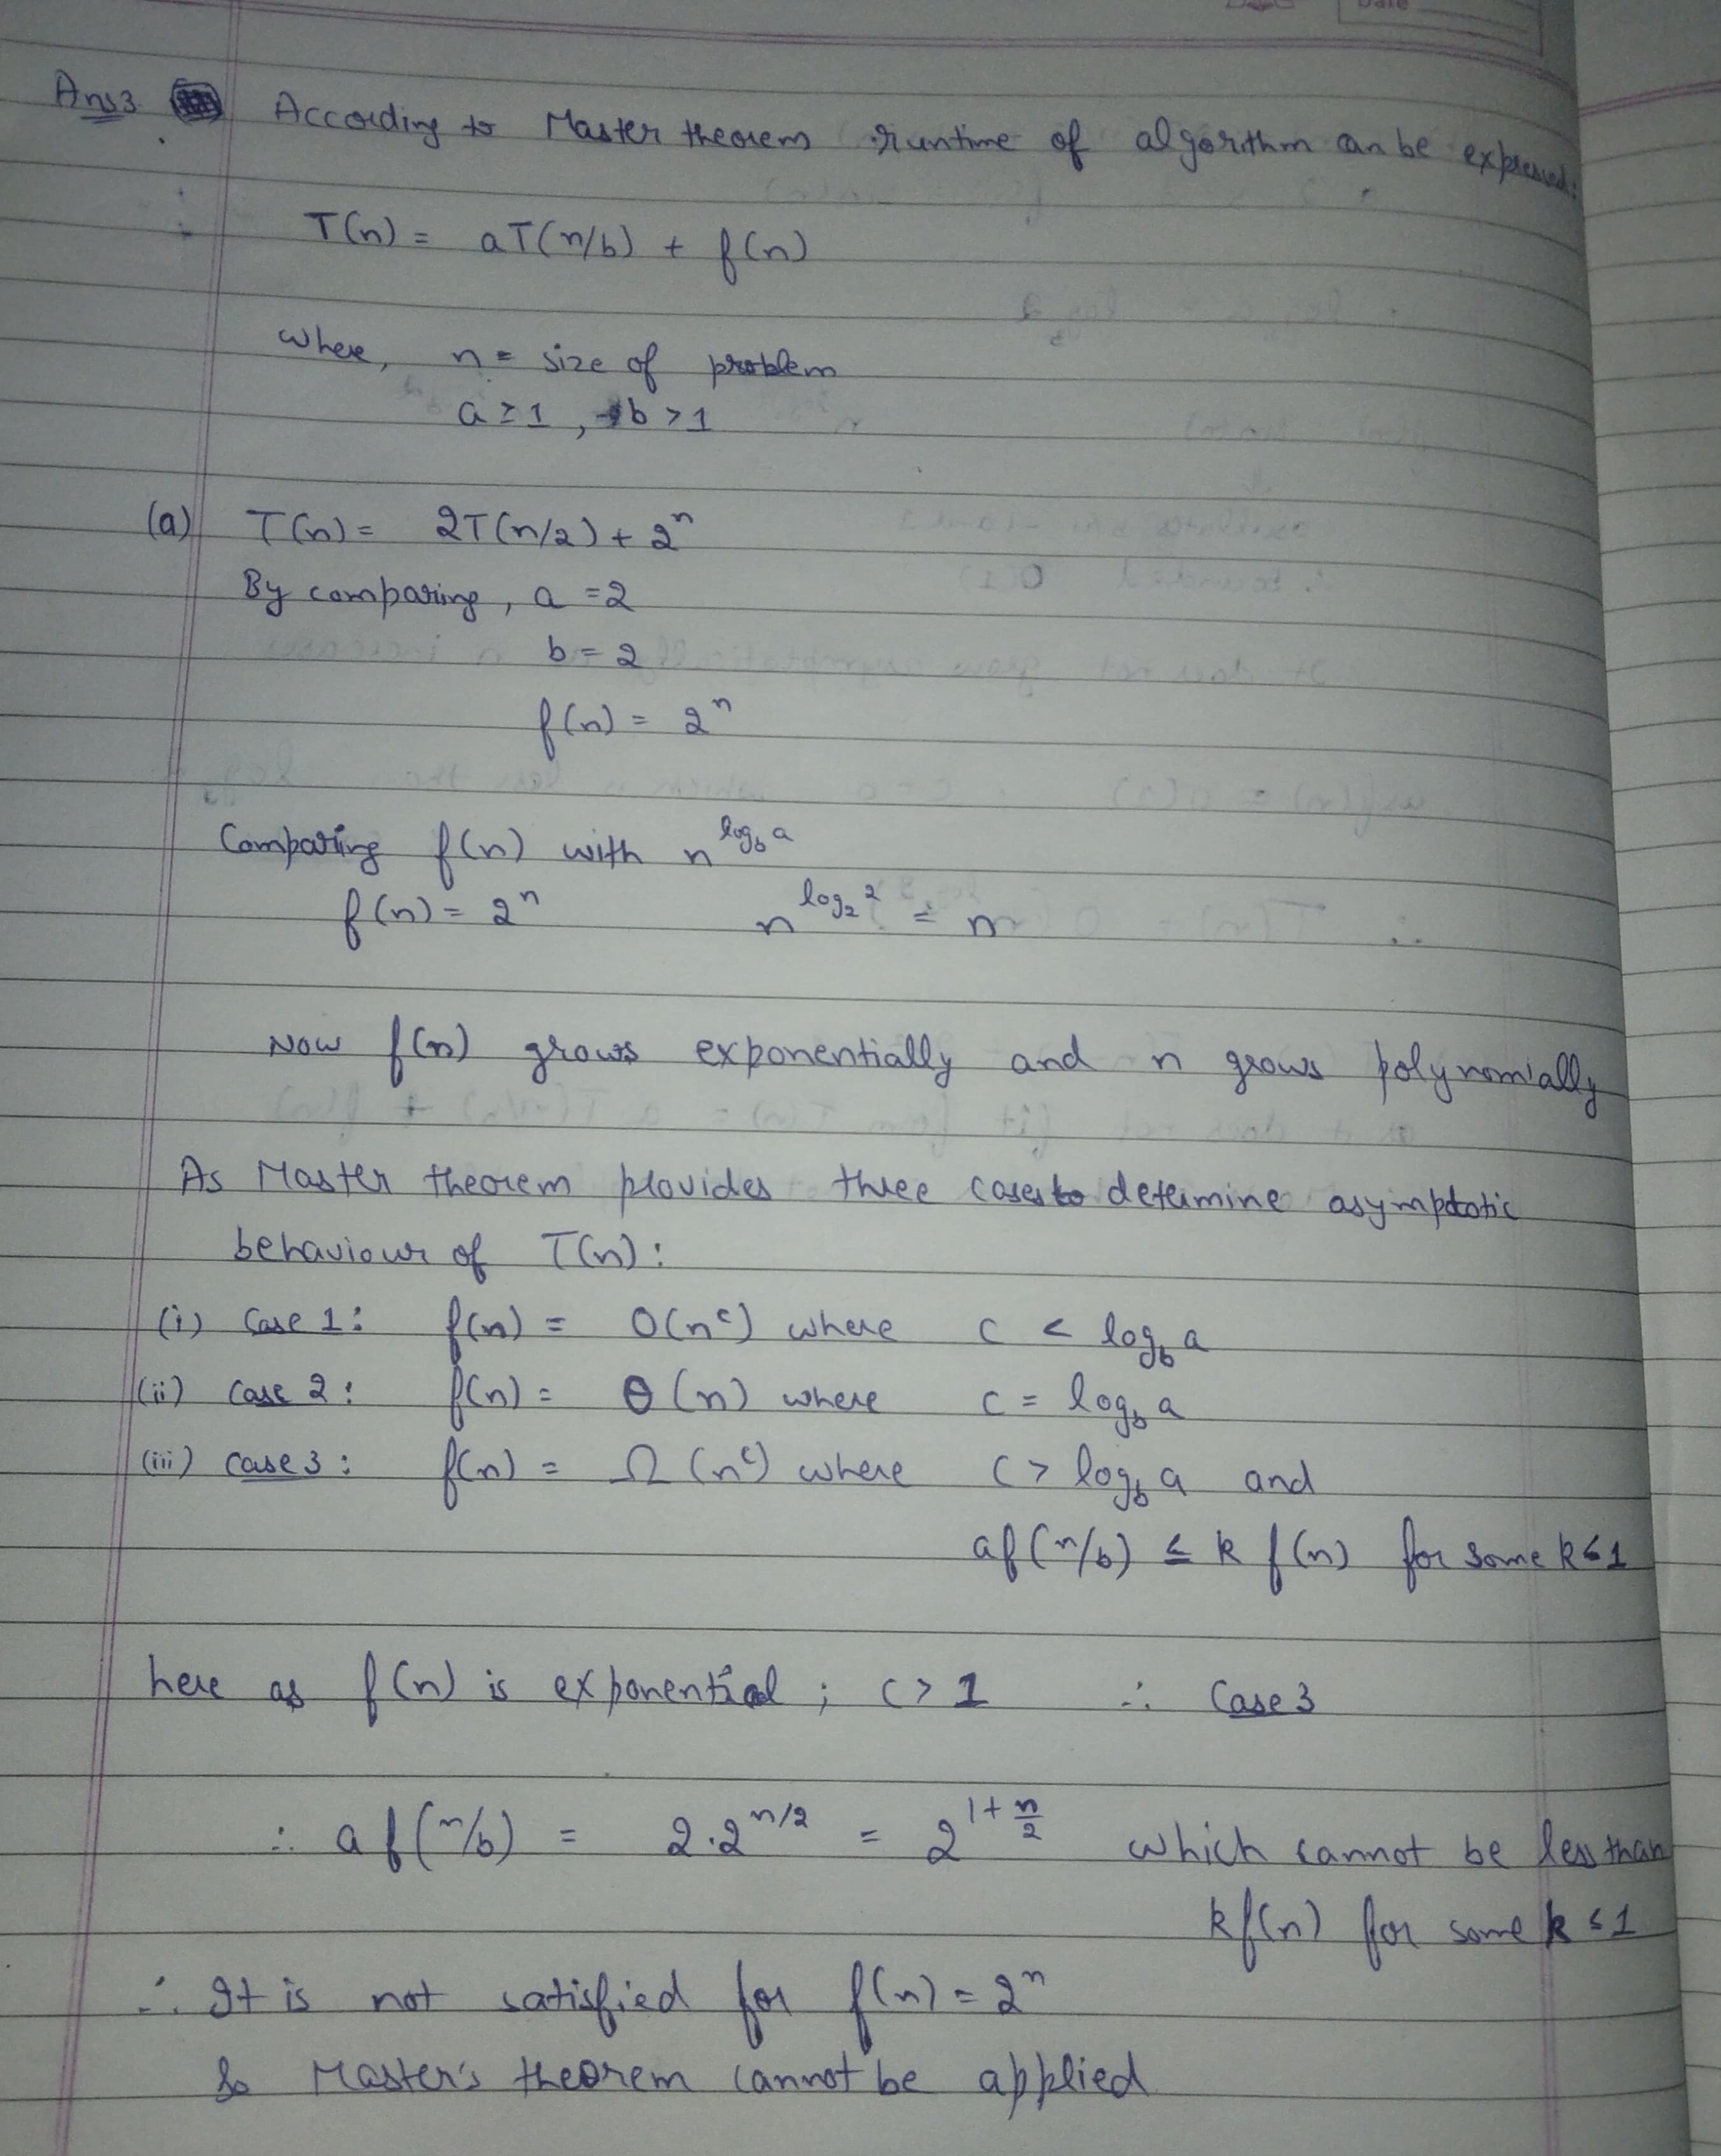 Date
Ans3 According to Master theorem runtime of algorithm can be expressed:
T(n) = aT(n/b) + f(n)
where, n = size of problem
a ≥ 1, b > 1
(a) T(n) = 2T(n/2) + 2^n
By comparing, a = 2
b = 2
f(n) = 2^n
Comparing f(n) with n^{log_b a}
f(n) = 2^n n^{log_2 2} = n
Now f(n) grows exponentially and n grows polynomially
As Master theorem provides three cases to determine asymptotic
behaviour of T(n):
(i) Case 1: f(n) = O(n^c) where c < log_b a
(ii) Case 2: f(n) = θ(n) where c = log_b a
(iii) case 3: f(n) = Ω(n^c) where c > log_b a and
af(n/b) ≤ k f(n) for some k ≤ 1
here as f(n) is exponential; c > 1 ∴ Case 3
∴ a f(n/b) = 2.2^{n/2} = 2^{1+n/2} which cannot be less than
kf(n) for some k ≤ 1
∴ It is not satisfied for f(n) = 2^n
So Master's theorem cannot be applied